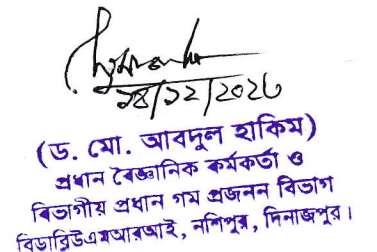 ২৪/১২/২০২৩
(ড. মো. আবদুল হাকিম)
প্রধান বৈজ্ঞানিক কর্মকর্তা ও
বিভাগীয় প্রধান গম প্রজনন বিভাগ
বিডাব্লিউএমআরআই, নশিপুর, দিনাজপুর।